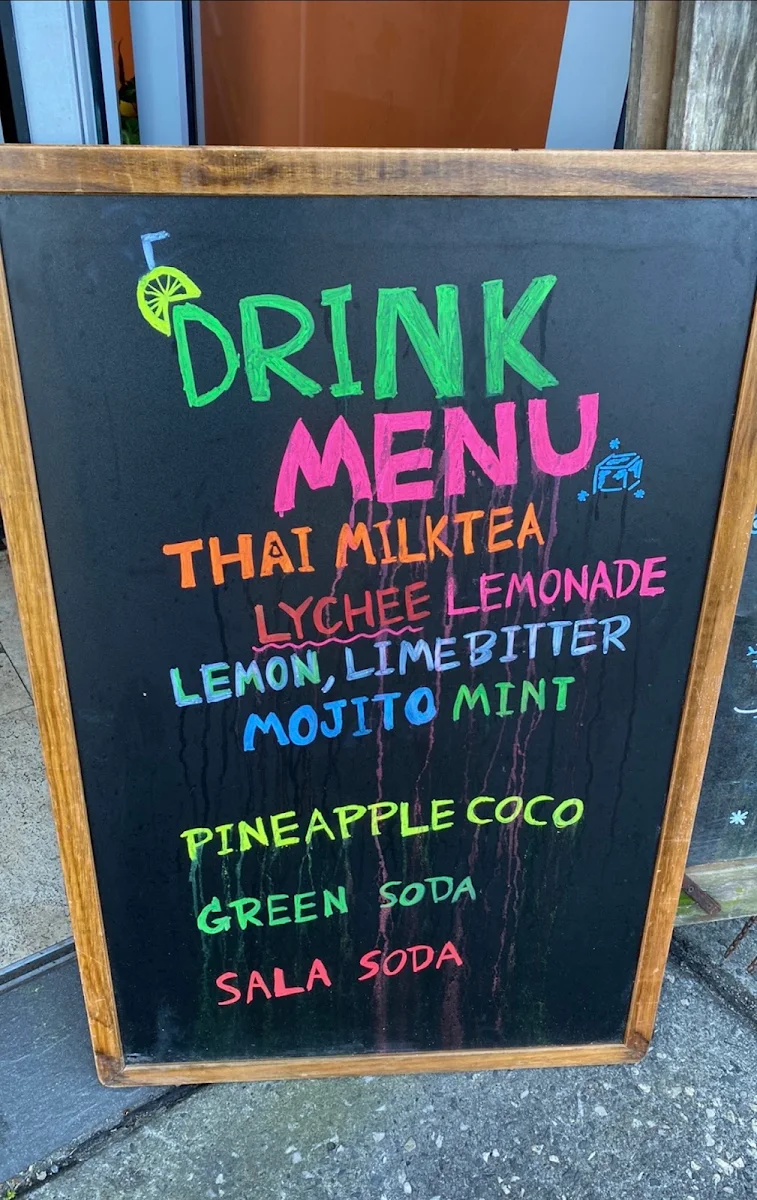 DRINK
MENU
THAI MILKTEA
LYCHEE LEMONADE
LEMON, LIME BITTER
MOJITO MINT
PINEAPPLE COCO
GREEN SODA
SALA SODA